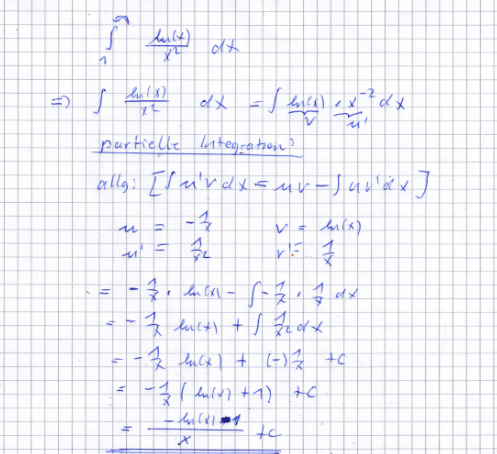 ∫₁^∞ ln(x)/x² dx
=> ∫ ln(x)/x² dx = ∫ ln(x) · x⁻² dx
v u'
partielle Integration:
allg: [∫u'v dx = uv - ∫uv'dx]
u = -1/x v = ln(x)
u' = 1/x² v' = 1/x
= -1/x · ln(x) - ∫ -1/x · 1/x dx
= -1/x ln(x) + ∫ 1/x² dx
= -1/x ln(x) + (-)1/x + c
= -1/x (ln(x) + 1) + c
= (-ln(x) - 1)/x + c